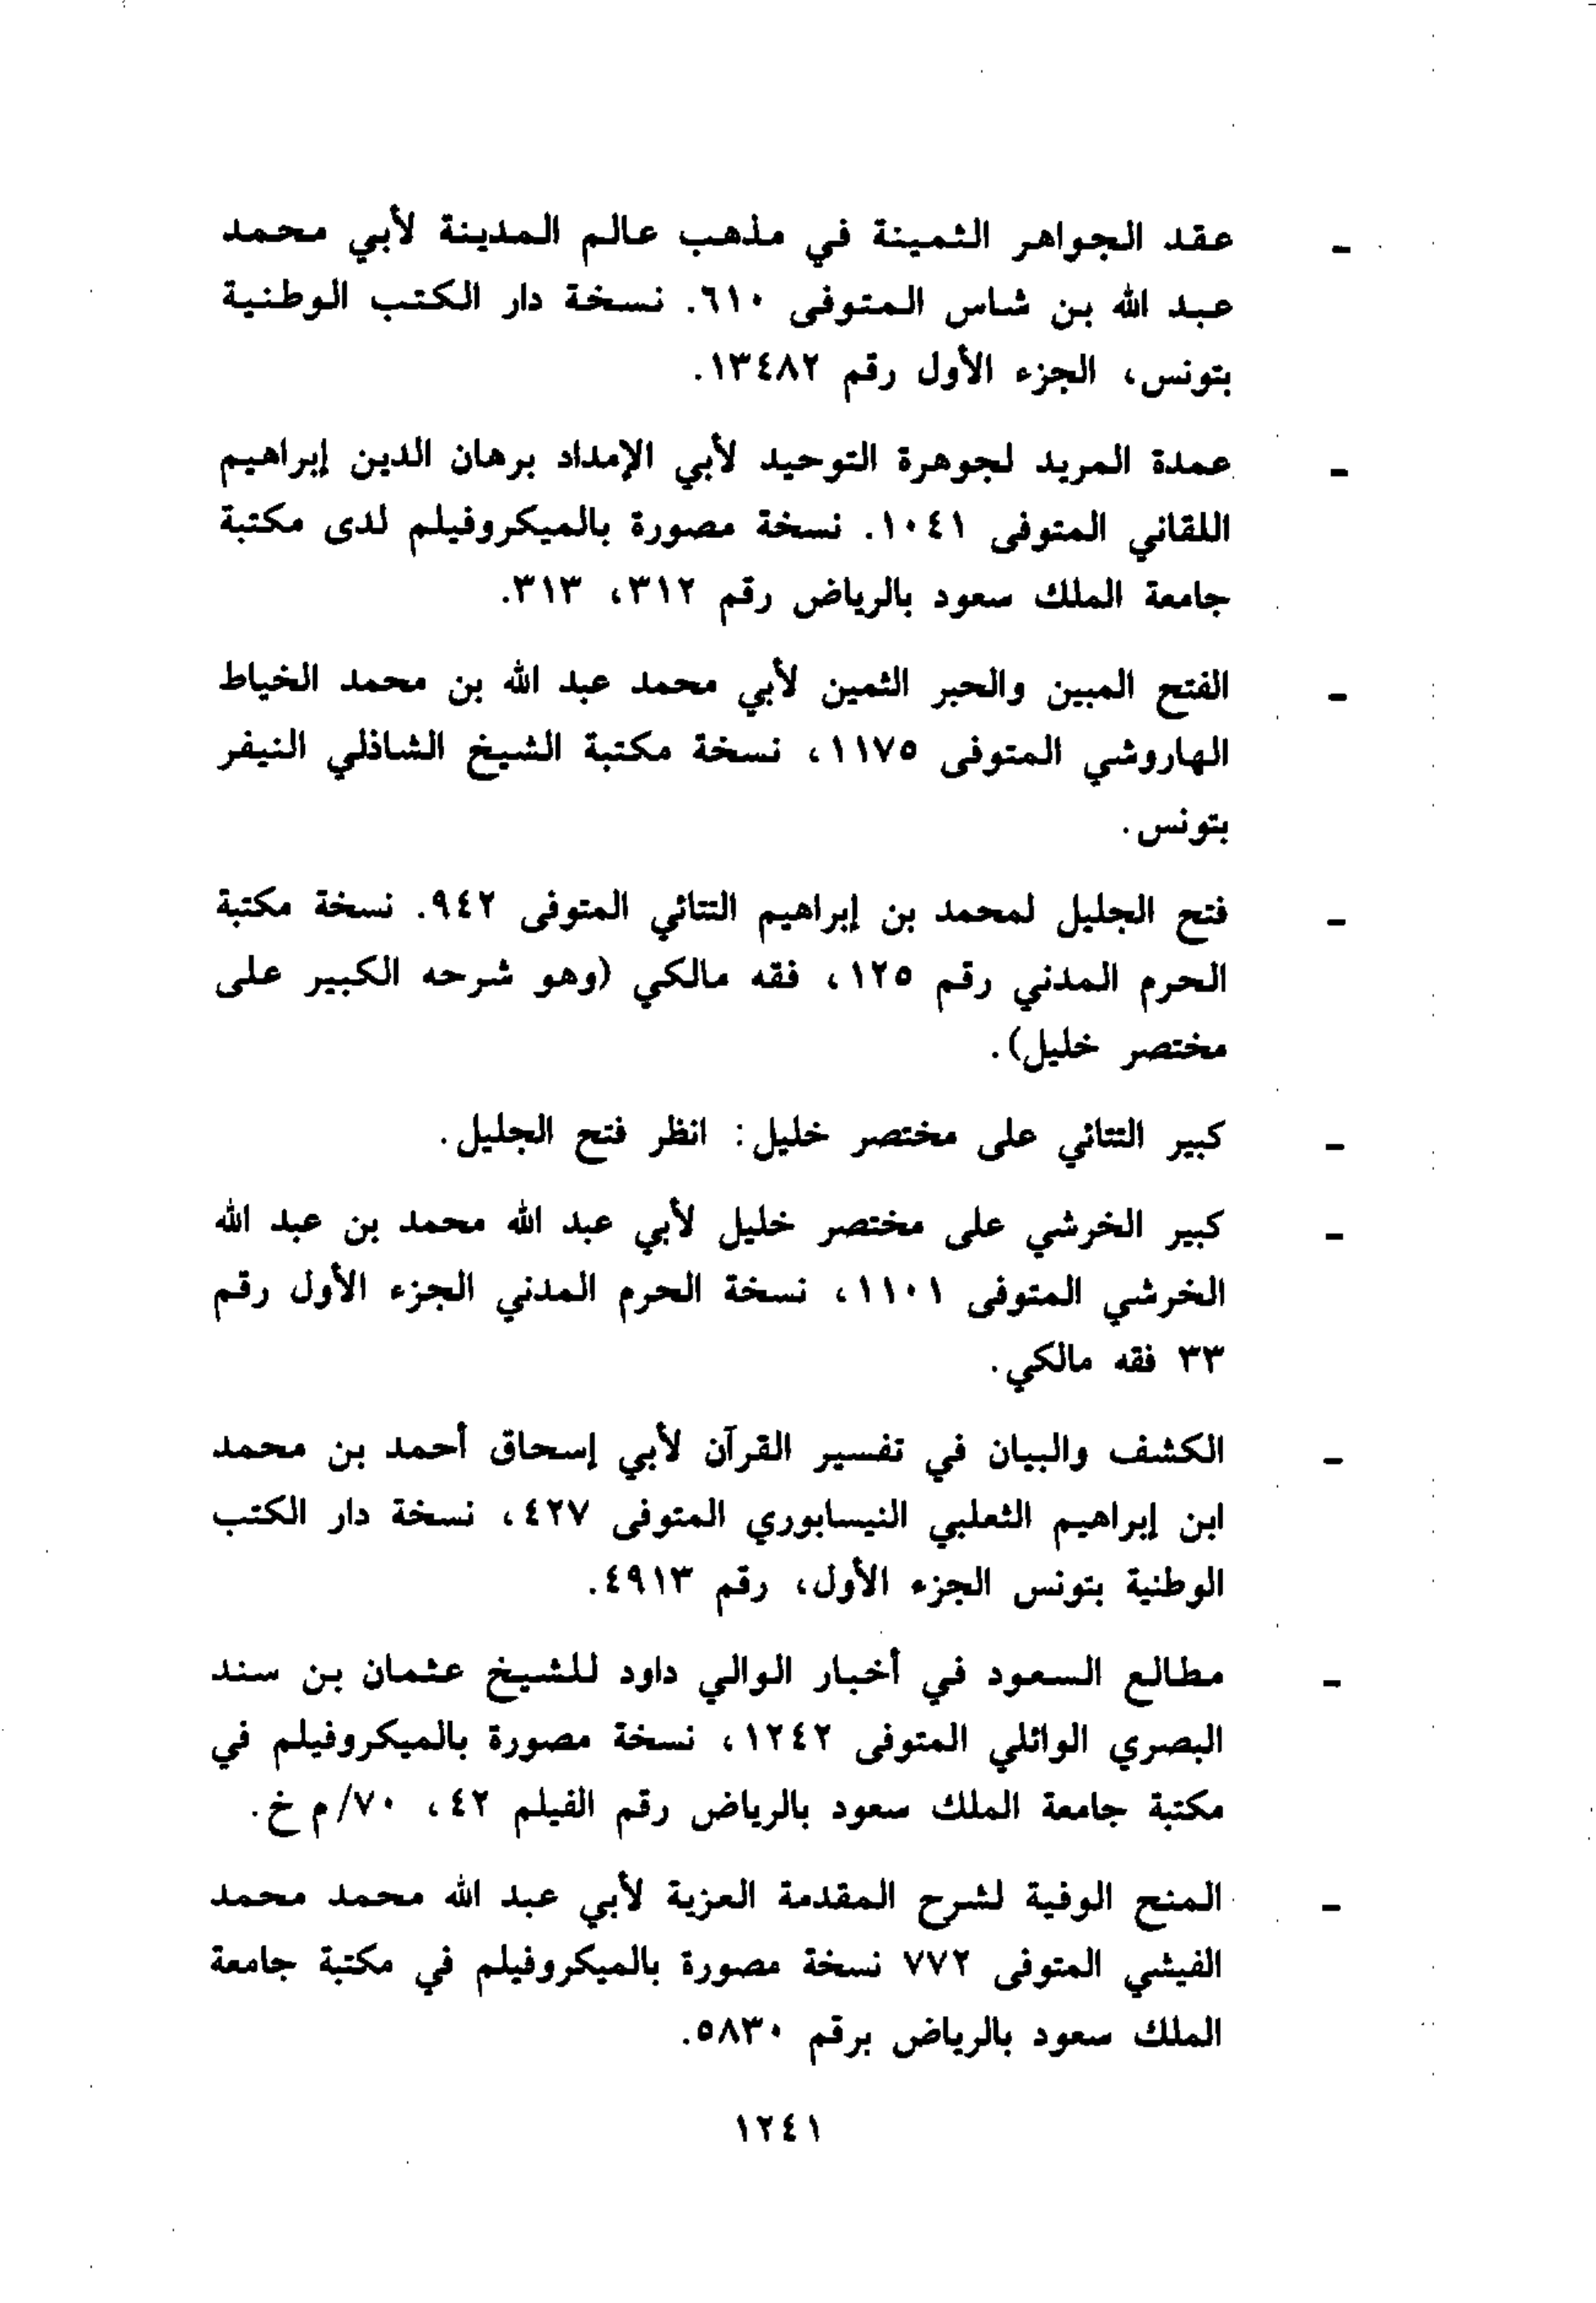 - عقد الجواهر الثمينة في مذهب عالم المدينة لأبي محمد
عبد الله بن شاس المتوفى ٦١٠. نسخة دار الكتب الوطنية
بتونس، الجزء الأول رقم ١٣٤٨٢.
- عمدة المريد لجوهرة التوحيد لأبي الإمداد برهان الدين إبراهيم
اللقاني المتوفى ١٠٤١. نسخة مصورة بالميكروفيلم لدى مكتبة
جامعة الملك سعود بالرياض رقم ٣١٢، ٣١٣.
- الفتح المبين والحبر الثمين لأبي محمد عبد الله بن محمد الخياط
الهاروشي المتوفى ١١٧٥، نسخة مكتبة الشيخ الشاذلي النيفر
بتونس.
- فتح الجليل لمحمد بن إبراهيم التتائي المتوفى ٩٤٢. نسخة مكتبة
الحرم المدني رقم ١٢٥، فقه مالكي (وهو شرحه الكبير على
مختصر خليل).
- كبير التتائي على مختصر خليل: انظر فتح الجليل.
- كبير الخرشي على مختصر خليل لأبي عبد الله محمد بن عبد الله
الخرشي المتوفى ١١٠١، نسخة الحرم المدني الجزء الأول رقم
٣٣ فقه مالكي.
- الكشف والبيان في تفسير القرآن لأبي إسحاق أحمد بن محمد
ابن إبراهيم الثعلبي النيسابوري المتوفى ٤٢٧، نسخة دار الكتب
الوطنية بتونس الجزء الأول، رقم ٤٩١٣.
- مطالع السعود في أخبار الوالي داود للشيخ عثمان بن سند
البصري الوائلي المتوفى ١٢٤٢، نسخة مصورة بالميكروفيلم في
مكتبة جامعة الملك سعود بالرياض رقم الفيلم ٤٢، ٧٠/م خ.
- المنح الوفية لشرح المقدمة العزية لأبي عبد الله محمد محمد
الفيشي المتوفى ٧٧٢ نسخة مصورة بالميكروفيلم في مكتبة جامعة
الملك سعود بالرياض برقم ٥٨٣٠.
١٢٤١